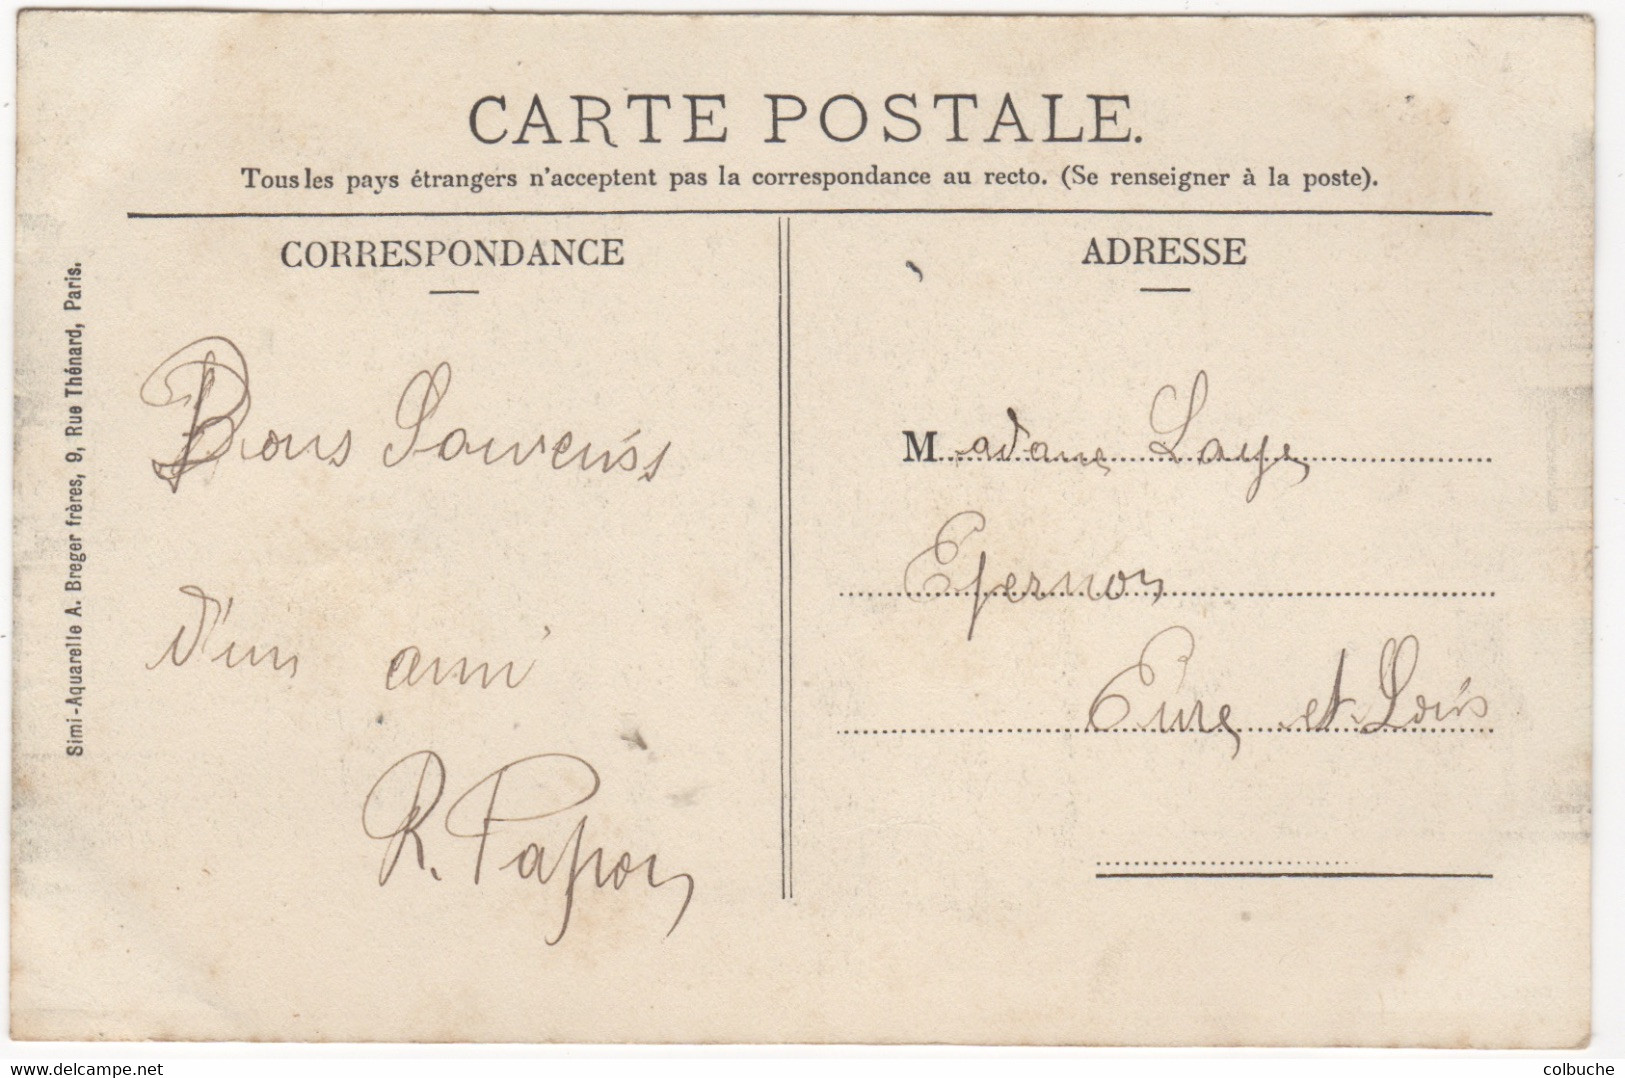 CARTE POSTALE.
Tous les pays étrangers n'acceptent pas la correspondance au recto. (Se renseigner à la poste).
CORRESPONDANCE
Bons Souvenirs
d'un ami
R. Papon
ADRESSE
Madame Laye
Epernon
Eure et Loir
Simi-Aquarelle A. Breger frères, 9, Rue Thénard, Paris.
delcampe.net
colbuche